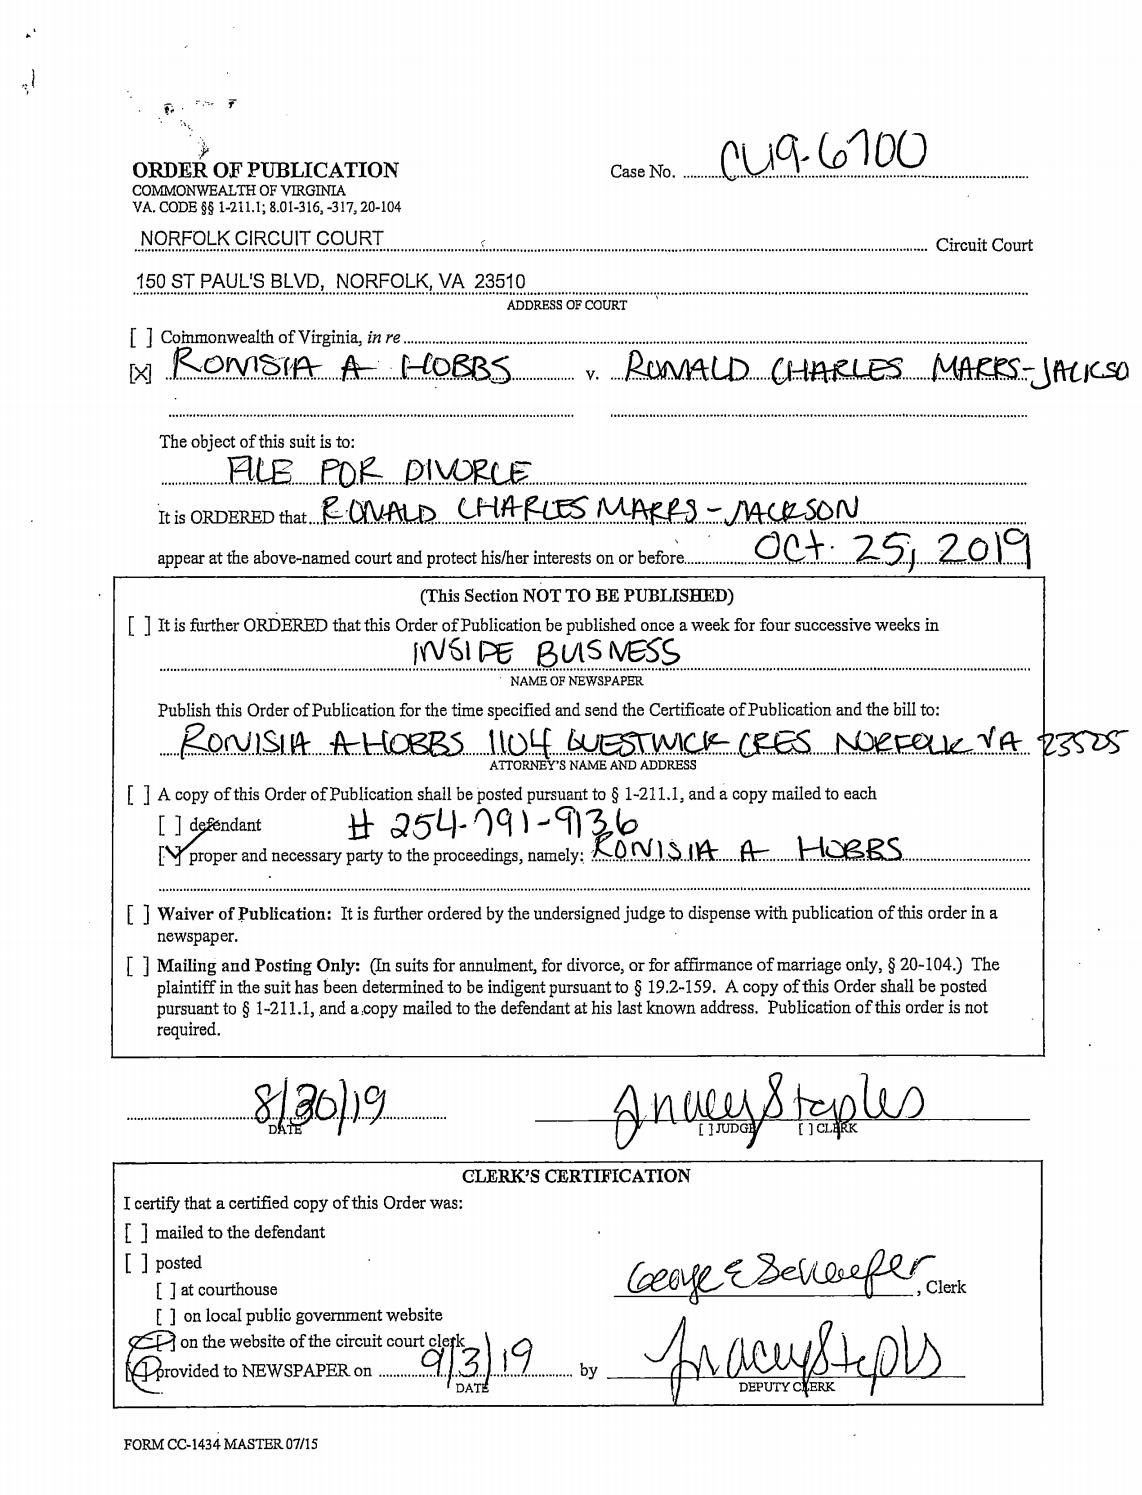 ORDER OF PUBLICATION
Case No. CL19-6700
COMMONWEALTH OF VIRGINIA
VA. CODE §§ 1-211.1; 8.01-316, -317, 20-104
NORFOLK CIRCUIT COURT Circuit Court
150 ST PAUL'S BLVD, NORFOLK, VA 23510
ADDRESS OF COURT
[ ] Commonwealth of Virginia, in re
[X] RONISIA A HOBBS v. RONALD CHARLES MARRS-JACKSO
The object of this suit is to:
FILE FOR DIVORCE
It is ORDERED that RONALD CHARLES MARRS-JACKSON
appear at the above-named court and protect his/her interests on or before Oct. 25, 2019
(This Section NOT TO BE PUBLISHED)
[ ] It is further ORDERED that this Order of Publication be published once a week for four successive weeks in
INSIDE BUISNESS
NAME OF NEWSPAPER
Publish this Order of Publication for the time specified and send the Certificate of Publication and the bill to:
RONISIA A HOBBS 1104 WESTWICK CRES NORFOLK VA 23505
ATTORNEY'S NAME AND ADDRESS
[ ] A copy of this Order of Publication shall be posted pursuant to § 1-211.1, and a copy mailed to each
[ ] defendant # 254-791-9136
[✓] proper and necessary party to the proceedings, namely: RONISIA A HOBBS
[ ] Waiver of Publication: It is further ordered by the undersigned judge to dispense with publication of this order in a
newspaper.
[ ] Mailing and Posting Only: (In suits for annulment, for divorce, or for affirmance of marriage only, § 20-104.) The
plaintiff in the suit has been determined to be indigent pursuant to § 19.2-159. A copy of this Order shall be posted
pursuant to § 1-211.1, and a copy mailed to the defendant at his last known address. Publication of this order is not
required.
8/30/19 Tracey Staples
DATE [ ] JUDGE [ ] CLERK
CLERK'S CERTIFICATION
I certify that a certified copy of this Order was:
[ ] mailed to the defendant
[ ] posted
[ ] at courthouse
George E Schaefer, Clerk
[ ] on local public government website
[ ] on the website of the circuit court clerk
[✓] provided to NEWSPAPER on 9/3/19 by Tracey Staples
DATE DEPUTY CLERK
FORM CC-1434 MASTER 07/15